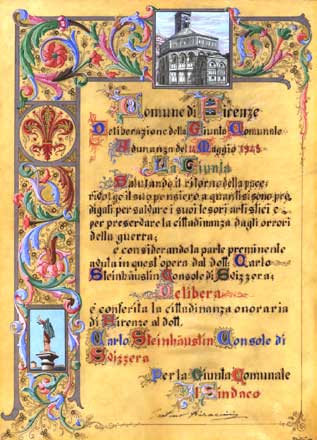 Comune di Firenze
Deliberazione della Giunta Comunale
Adunanza del 14 Maggio 1945
La Giunta
Salutando il ritorno della pace
rivolge il suo pensiero a quanti si sono pro-
digati per salvare i suoi tesori artistici e
per preservare la cittadinanza dagli orrori
della guerra;
e considerando la parte preminente
avuta in quest'opera dal dott. Carlo
Steinhäuslin Console di Svizzera;
Delibera
è conferita la cittadinanza onoraria
di Firenze al dott.
Carlo Steinhäuslin Console di
Svizzera
Per la Giunta Comunale
Il Sindaco